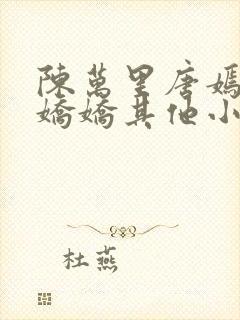 陳萬里唐嫣
嬌嬌其他小
杜燕